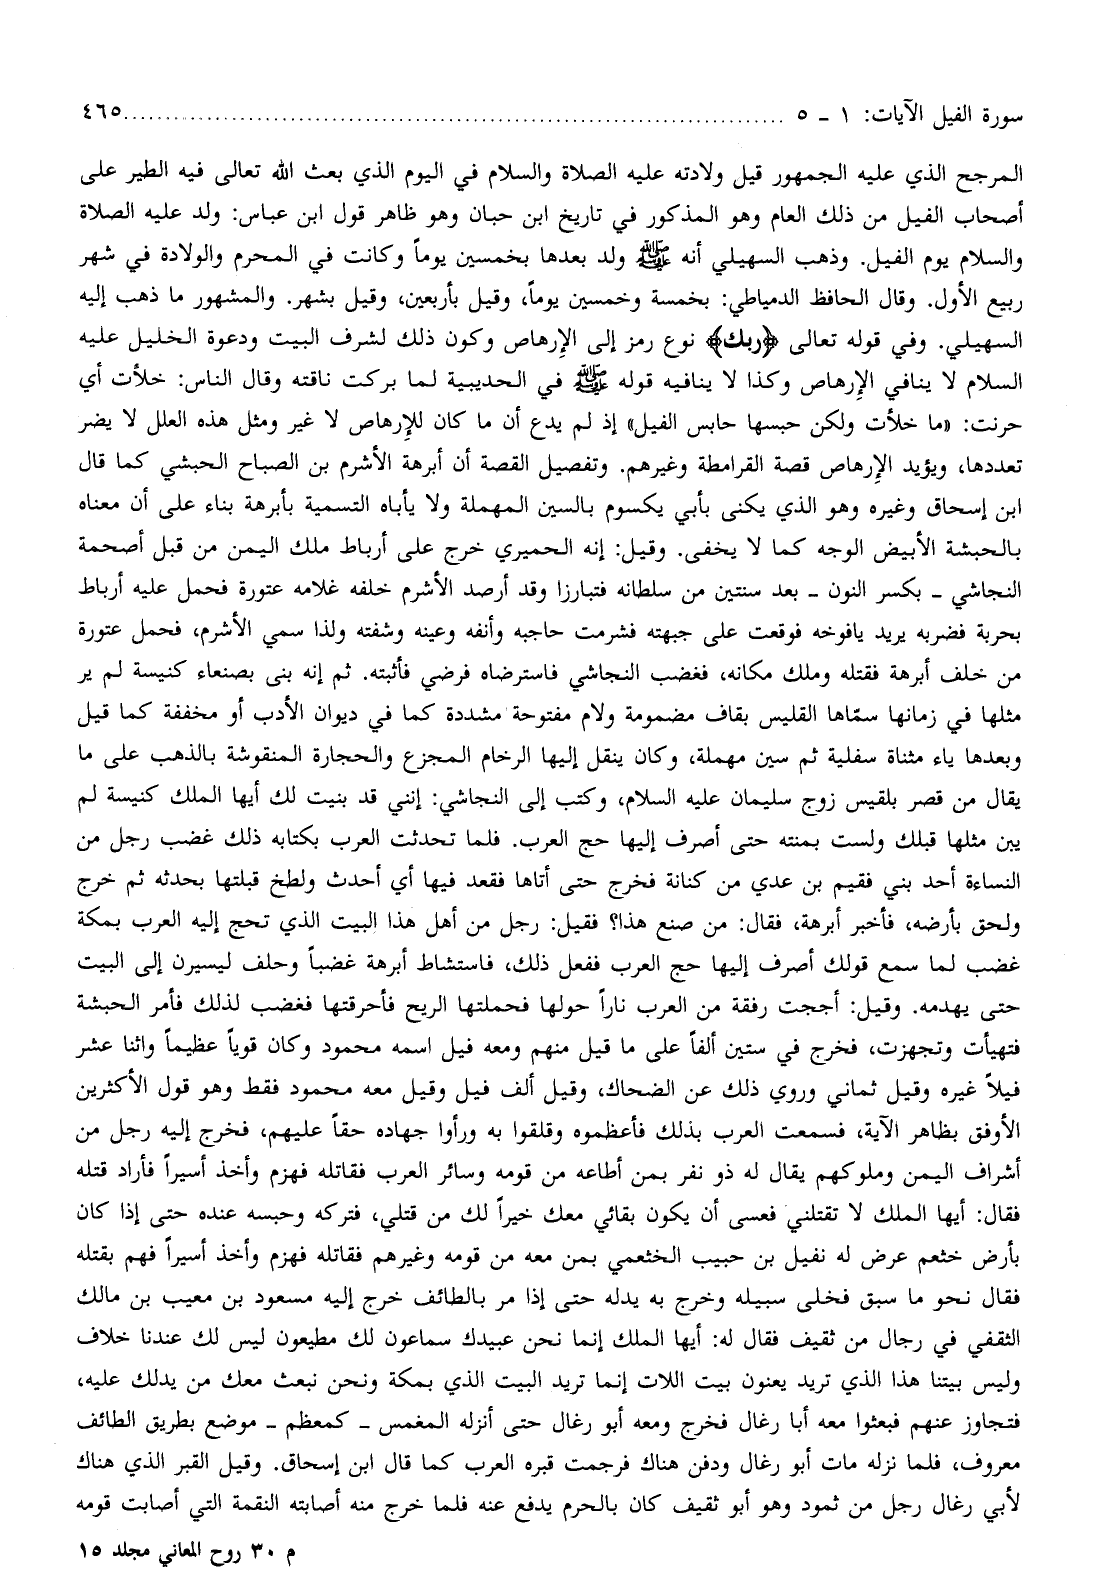 سورة الفيل الآيات: ١ ـ ٥ ........................................................................................ ٤٦٥
المرجح الذي عليه الجمهور قيل ولادته عليه الصلاة والسلام في اليوم الذي بعث الله تعالى فيه الطير على
أصحاب الفيل من ذلك العام وهو المذكور في تاريخ ابن حبان وهو ظاهر قول ابن عباس: ولد عليه الصلاة
والسلام يوم الفيل. وذهب السهيلي أنه ﷺ ولد بعدها بخمسين يوماً وكانت في المحرم والولادة في شهر
ربيع الأول. وقال الحافظ الدمياطي: بخمسة وخمسين يوماً، وقيل بأربعين، وقيل بشهر. والمشهور ما ذهب إليه
السهيلي. وفي قوله تعالى ﴿ربك﴾ نوع رمز إلى الإرهاص وكون ذلك لشرف البيت ودعوة الخليل عليه
السلام لا ينافي الإرهاص وكذا لا ينافيه قوله ﷺ في الحديبية لما بركت ناقته وقال الناس: خلأت أي
حرنت: «ما خلأت ولكن حبسها حابس الفيل» إذ لم يدع أن ما كان للإرهاص لا غير ومثل هذه العلل لا يضر
تعددها، ويؤيد الإرهاص قصة القرامطة وغيرهم. وتفصيل القصة أن أبرهة الأشرم بن الصباح الحبشي كما قال
ابن إسحاق وغيره وهو الذي يكنى بأبي يكسوم بالسين المهملة ولا يأباه التسمية بأبرهة بناء على أن معناه
بالحبشة الأبيض الوجه كما لا يخفى. وقيل: إنه الحميري خرج على أرباط ملك اليمن من قبل أصحمة
النجاشي ـ بكسر النون ـ بعد سنتين من سلطانه فتبارزا وقد أرصد الأشرم خلفه غلامه عتورة فحمل عليه أرباط
بحربة فضربه يريد يافوخه فوقعت على جبهته فشرمت حاجبه وأنفه وعينه وشفته ولذا سمي الأشرم، فحمل عتورة
من خلف أبرهة فقتله وملك مكانه، فغضب النجاشي فاسترضاه فرضي فأثبته. ثم إنه بنى بصنعاء كنيسة لم ير
مثلها في زمانها سمّاها القليس بقاف مضمومة ولام مفتوحة مشددة كما في ديوان الأدب أو مخففة كما قيل
وبعدها ياء مثناة سفلية ثم سين مهملة، وكان ينقل إليها الرخام المجزع والحجارة المنقوشة بالذهب على ما
يقال من قصر بلقيس زوج سليمان عليه السلام، وكتب إلى النجاشي: إنني قد بنيت لك أيها الملك كنيسة لم
يبن مثلها قبلك ولست بمنته حتى أصرف إليها حج العرب. فلما تحدثت العرب بكتابه ذلك غضب رجل من
النساءة أحد بني فقيم بن عدي من كنانة فخرج حتى أتاها فقعد فيها أي أحدث ولطخ قبلتها بحدثه ثم خرج
ولحق بأرضه، فأخبر أبرهة، فقال: من صنع هذا؟ فقيل: رجل من أهل هذا البيت الذي تحج إليه العرب بمكة
غضب لما سمع قولك أصرف إليها حج العرب ففعل ذلك، فاستشاط أبرهة غضباً وحلف ليسيرن إلى البيت
حتى يهدمه. وقيل: أججت رفقة من العرب ناراً حولها فحملتها الريح فأحرقتها فغضب لذلك فأمر الحبشة
فتهيأت وتجهزت، فخرج في ستين ألفاً على ما قيل منهم ومعه فيل اسمه محمود وكان قوياً عظيماً واثنا عشر
فيلاً غيره وقيل ثماني وروي ذلك عن الضحاك، وقيل ألف فيل وقيل معه محمود فقط وهو قول الأكثرين
الأوفق بظاهر الآية، فسمعت العرب بذلك فأعظموه وقلقوا به ورأوا جهاده حقاً عليهم، فخرج إليه رجل من
أشراف اليمن وملوكهم يقال له ذو نفر بمن أطاعه من قومه وسائر العرب فقاتله فهزم وأخذ أسيراً فأراد قتله
فقال: أيها الملك لا تقتلني فعسى أن يكون بقائي معك خيراً لك من قتلي، فتركه وحبسه عنده حتى إذا كان
بأرض خثعم عرض له نفيل بن حبيب الخثعمي بمن معه من قومه وغيرهم فقاتله فهزم وأخذ أسيراً فهم بقتله
فقال نحو ما سبق فخلى سبيله وخرج به يدله حتى إذا مر بالطائف خرج إليه مسعود بن معيب بن مالك
الثقفي في رجال من ثقيف فقال له: أيها الملك إنما نحن عبيدك سماعون لك مطيعون ليس لك عندنا خلاف
وليس بيتنا هذا الذي تريد يعنون بيت اللات إنما تريد البيت الذي بمكة ونحن نبعث معك من يدلك عليه،
فتجاوز عنهم فبعثوا معه أبا رغال فخرج ومعه أبو رغال حتى أنزله المغمس ـ كمعظم ـ موضع بطريق الطائف
معروف، فلما نزله مات أبو رغال ودفن هناك فرجمت قبره العرب كما قال ابن إسحاق. وقيل القبر الذي هناك
لأبي رغال رجل من ثمود وهو أبو ثقيف كان بالحرم يدفع عنه فلما خرج منه أصابته النقمة التي أصابت قومه
م ٣٠ روح المعاني مجلد ١٥